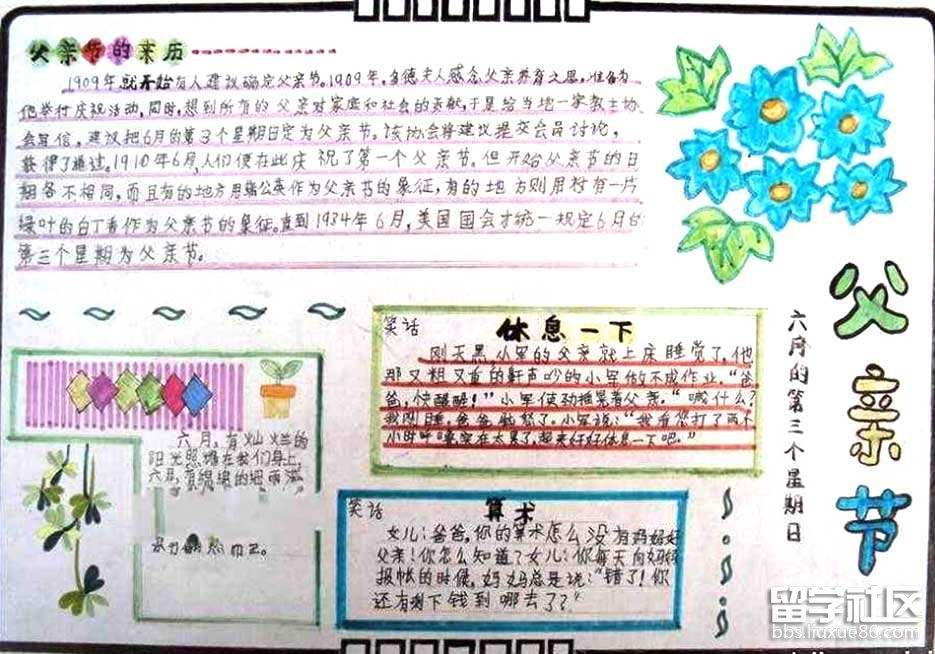 父亲节的来历
1909年就开始有人建议确定父亲节。1909年,多德夫人感念父亲养育之恩,准备为
他举行庆祝活动,同时,想到所有的父亲对家庭和社会的贡献,于是给当地一家教士协
会写信,建议把6月的第3个星期日定为父亲节。该协会将建议提交会员讨论,
获得了通过。1910年6月,人们便在此庆祝了第一个父亲节。但开始父亲节的日
期各不相同,而且有的地方用蒲公英作为父亲节的象征,有的地方则用衬有一片
绿叶的白丁香作为父亲节的象征。直到1934年6月,美国国会才统一规定6月的
第三个星期为父亲节。
父亲节
六月的第三个星期日
笑话
休息一下
刚天黑,小军的父亲就上床睡觉了,他
那又粗又重的鼾声吵的小军做不成作业。“爸
爸,快醒醒!”小军使劲摇晃着父亲。“喊什么?
我刚睡。爸爸
小军说:“我看您打了两个
小时呼噜实在太累了,起来好好休息一下吧。”
六月,有灿烂的
阳光照耀在我们身上,
六月,有绵绵的细雨
笑话
算术
女儿:爸爸,你的算术怎么没有妈妈好
父亲!你怎么知道?女儿:你每天向妈妈
报帐的时候,妈妈总是说:“错了!你
还有剩下钱到哪去了?”
留学社区
bbs.liuxue86.com